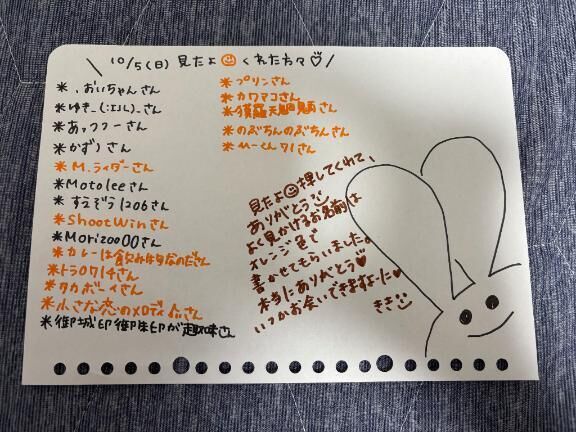 10/5(日) 見たよ☺くれた方々♡
*.おいちゃんさん
*ゆきー(:エル)_さん
*あっつーさん
*かずりさん
*M.ライダーさん
*Motoleeさん
*すえぞう1206さん
*ShootWinさん
*Morizo00さん
*カレーは飲み物なのださん
*トラ0714さん
*タカボーイさん
*小さな恋のメロディ♧さん
*御城印御朱印が趣味さん
*プリンさん
*カワマコさん
*天
*のぶちんのぶちんさん
*ひーくん71さん
見たよ☺押してくれて、
ありがとう☺
よく見かけるお名前は
オレンジ色で
書かせてもらいました。
本当にありがとう♥
いつかお会いできますように♥
きき☺